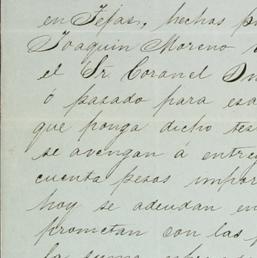 en Tejas, hechos p
Joaquin Moreno
el Sr. Coronel D
ó pasado para es
que ponga dicho tes
se avengan á entre
cuenta pesos impor
hoy se adeudan en
prometan con las
la suma